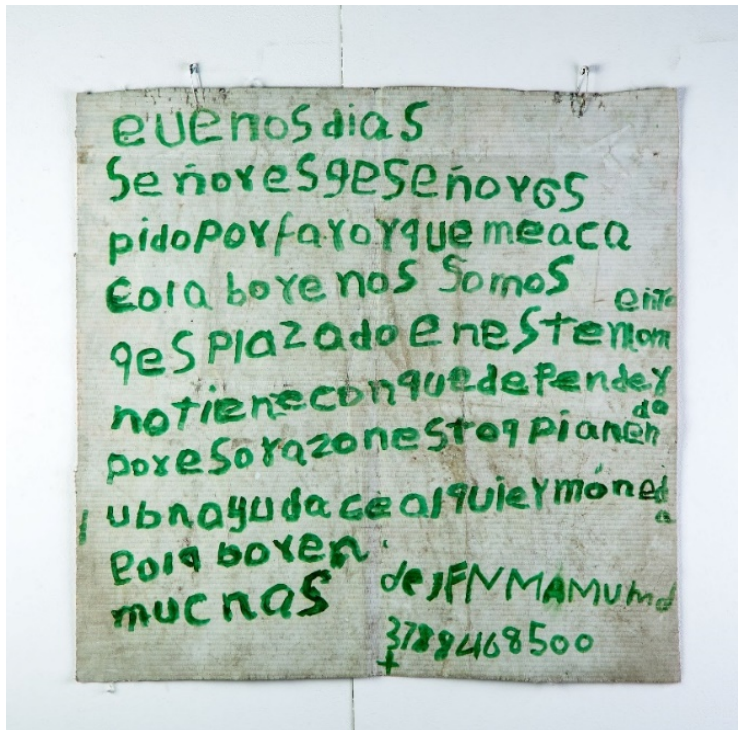 euenos dias
señores geseñores
pido por favor que meaca
cola bore nos somos
gesplazado enestemom
ento
notiene conque defender
poresorazonestoq pianen
do
ubnayuda ce alquier móned
a
cola boren
mucnas
de JFNMAMUMd
3788468500